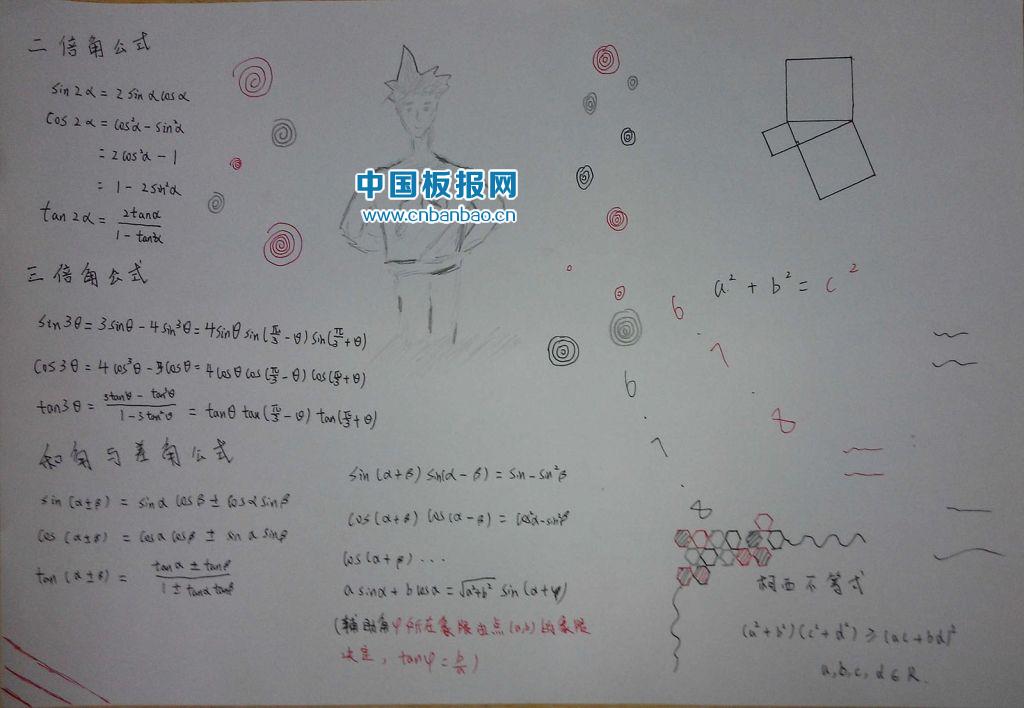 二倍角公式
sin2α = 2sinαcosα
cos2α = cos²α - sin²α
= 2cos²α - 1
= 1 - 2sin²α
tan2α = 2tanα / 1 - tan²α
三倍角公式
sin3θ = 3sinθ - 4sin³θ = 4sinθ sin(π/3 - θ) sin(π/3 + θ)
cos3θ = 4cos³θ - 3cosθ = 4cosθ cos(π/3 - θ) cos(π/3 + θ)
tan3θ = 3tanθ - tan³θ / 1 - 3tan²θ = tanθ tan(π/3 - θ) tan(π/3 + θ)
和角与差角公式
sin(α±β) = sinα cosβ ± cosα sinβ
cos(α±β) = cosα cosβ ± sinα sinβ
tan(α±β) = tanα ± tanβ / 1 ± tanα tanβ
sin(α+β) sin(α-β) = sin - sin²β
cos(α+β) cos(α-β) = cos²α - sin²β
cos(α+β)...
a sinα + b cosα = √a²+b² sin(α+φ)
(辅助角φ所在象限由点(a,b)的象限
决定, tanφ = b/a)
中国板报网
www.cnbanbao.cn
a² + b² = c²
6
7
8
6
7
8
柯西不等式
(a²+b²)(c²+d²) ≥ (ac+bd)²
a,b,c,d∈R.